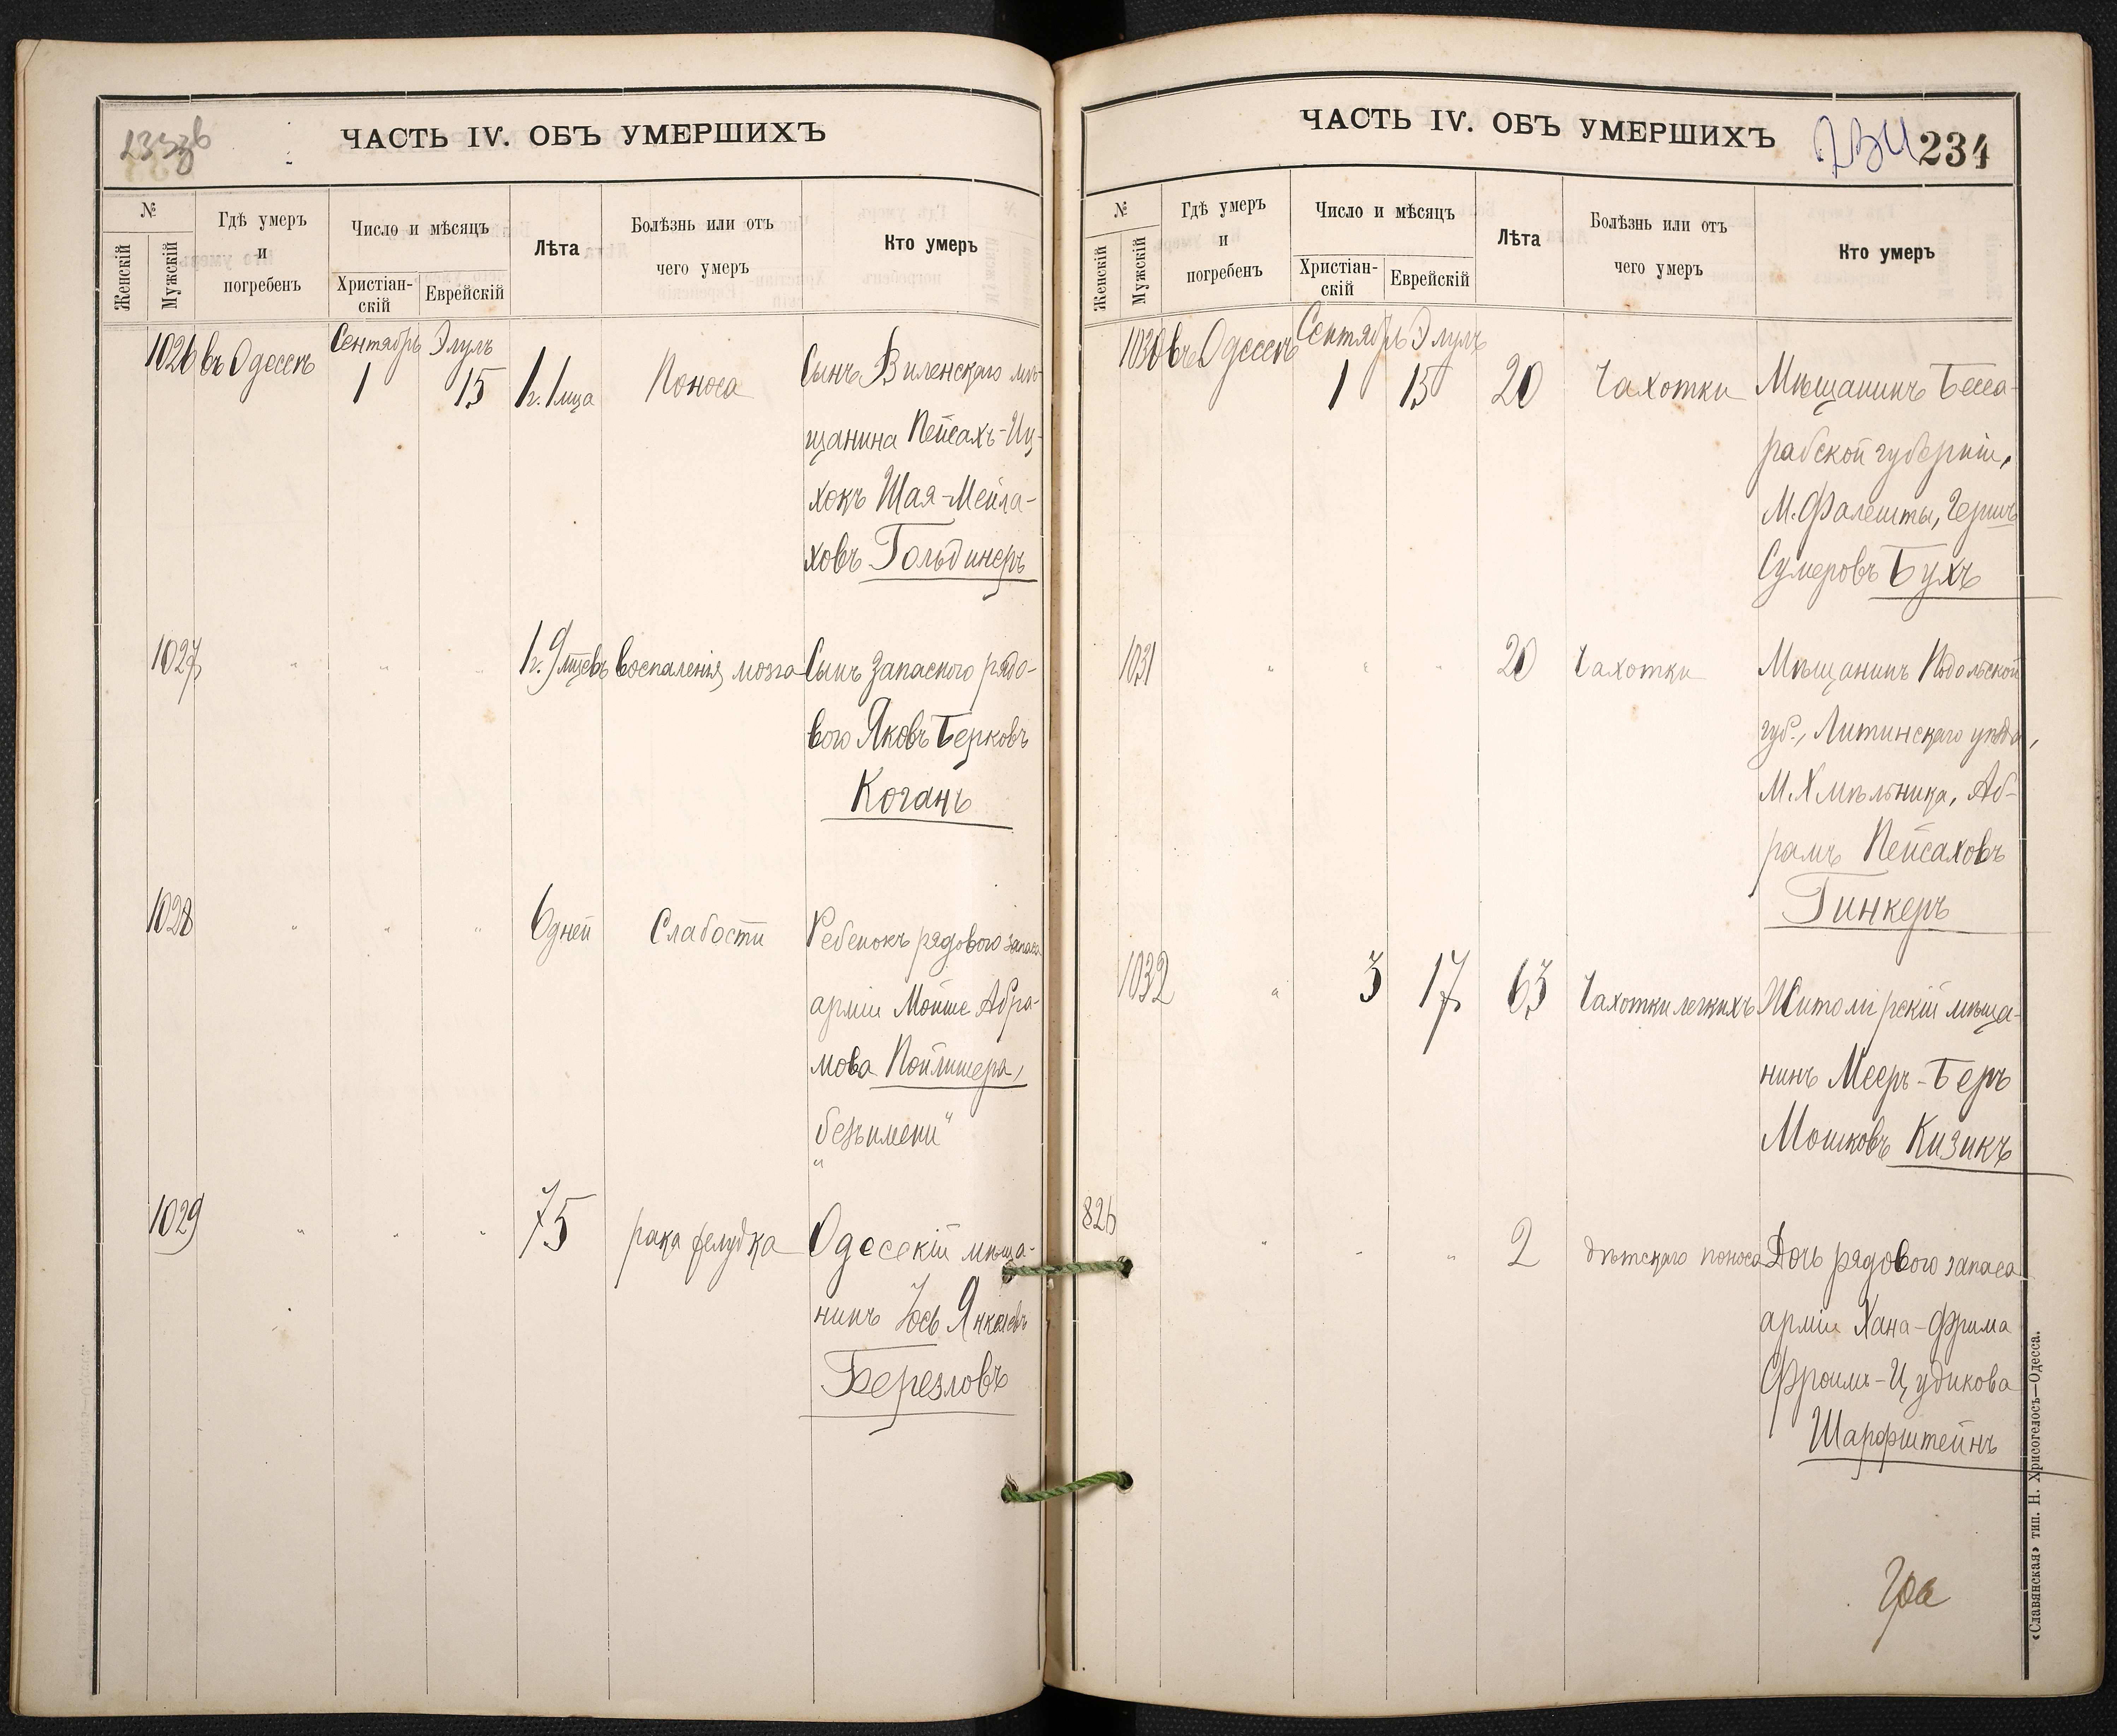 ЧАСТЬ IV. ОБЪ УМЕРШИХЪ
№
Женскій
Мужскій
Гдѣ умеръ
и
погребенъ
Число и мѣсяцъ
Христіан-
скій
Еврейскій
Лѣта
Болѣзнь или отъ
чего умеръ
Кто умеръ
1026 въ Одессѣ Сентябрь Элулъ
1 15 1 г. 1 мца Поноса Сынъ Виленскаго мѣ-
щанина Пейсахъ-Иц-
хокъ Шая-Мейла-
ховъ Гольдинеръ
1027 " " " 1 г. 9 мцевъ воспаленія мозга Сынъ запаснаго рядо-
вого Яковъ Берковъ
Коганъ
1028 " " " 6 дней Слабости Ребенокъ рядового запаса
арміи Мойше Абра-
мова Пойлишера,
"безъимени"
1029 " " " 75 рака желудка Одесскій мѣща-
нинъ Іось Янкелевъ
Березловъ
ЧАСТЬ IV. ОБЪ УМЕРШИХЪ
234 234
№
Женскій
Мужскій
Гдѣ умеръ
и
погребенъ
Число и мѣсяцъ
Христіан-
скій
Еврейскій
Лѣта
Болѣзнь или отъ
чего умеръ
Кто умеръ
1030 въ Одессѣ Сентябрь Элулъ
1 15 20 Чахотки Мѣщанинъ Бесса-
рабской губерніи,
М. Фалешты, Гершъ
Сумеровъ Бухъ
1031 " " " 20 Чахотки Мѣщанинъ Подольской
губ., Литинскаго уѣзда,
М. Хмѣльника, Аб-
рамъ Пейсаховъ
Гинкеръ
1032 " 3 17 63 Чахотки легкихъ Житомірскій мѣща-
нинъ Мееръ-Беръ
Мошковъ Кизикъ
826 " " " 2 дѣтскаго поноса Дочь рядового запаса
арміи Хана-Фрима
Фроимъ-Цудикова
Шарфштейнъ
«Славянская» тип. Н. Хрисогелосъ—Одесса.